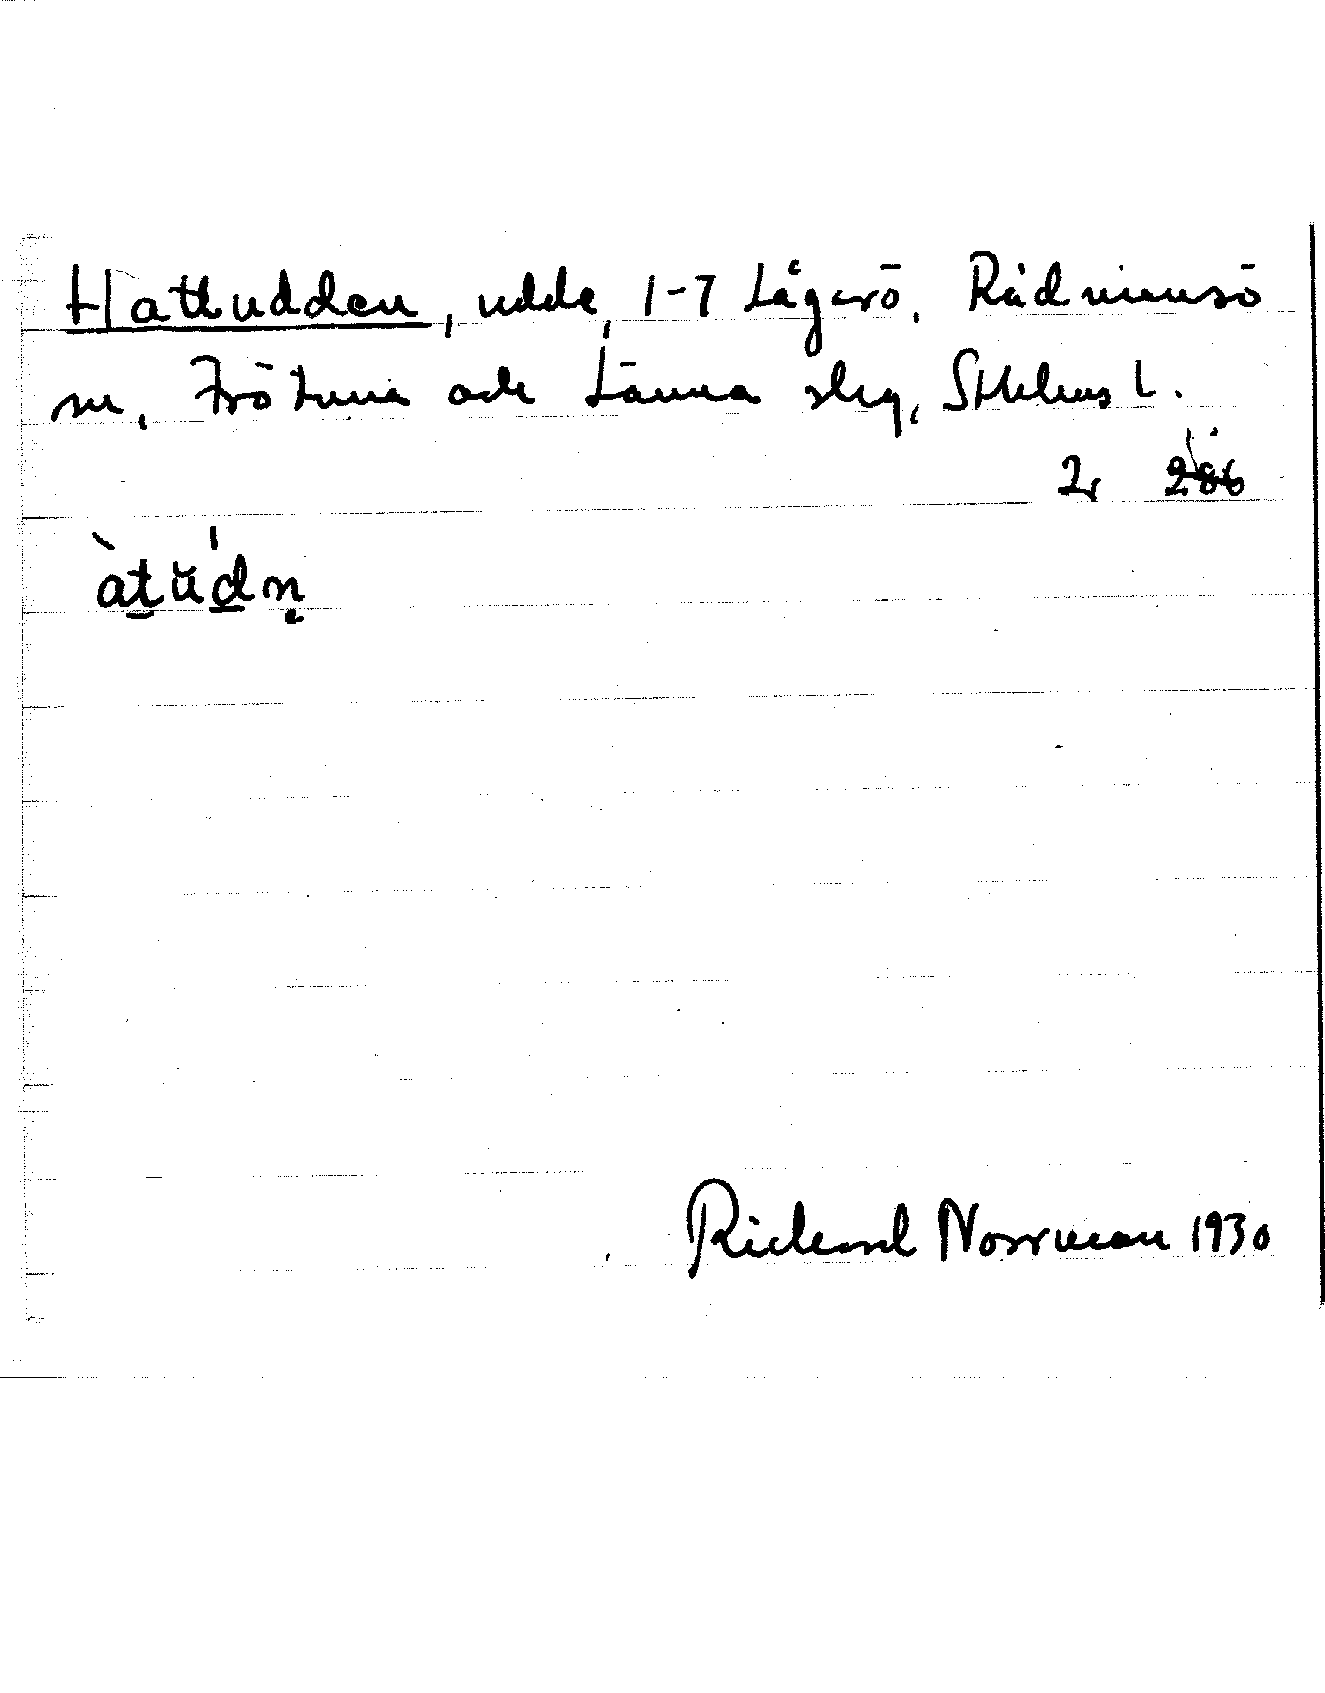 Hattudden, udde, 1-7 Lågarö, Rådmansö
sn, Frötuna och Länna slg, Sthlms l.
2,
àtŭdn
Richard Norrman 1930